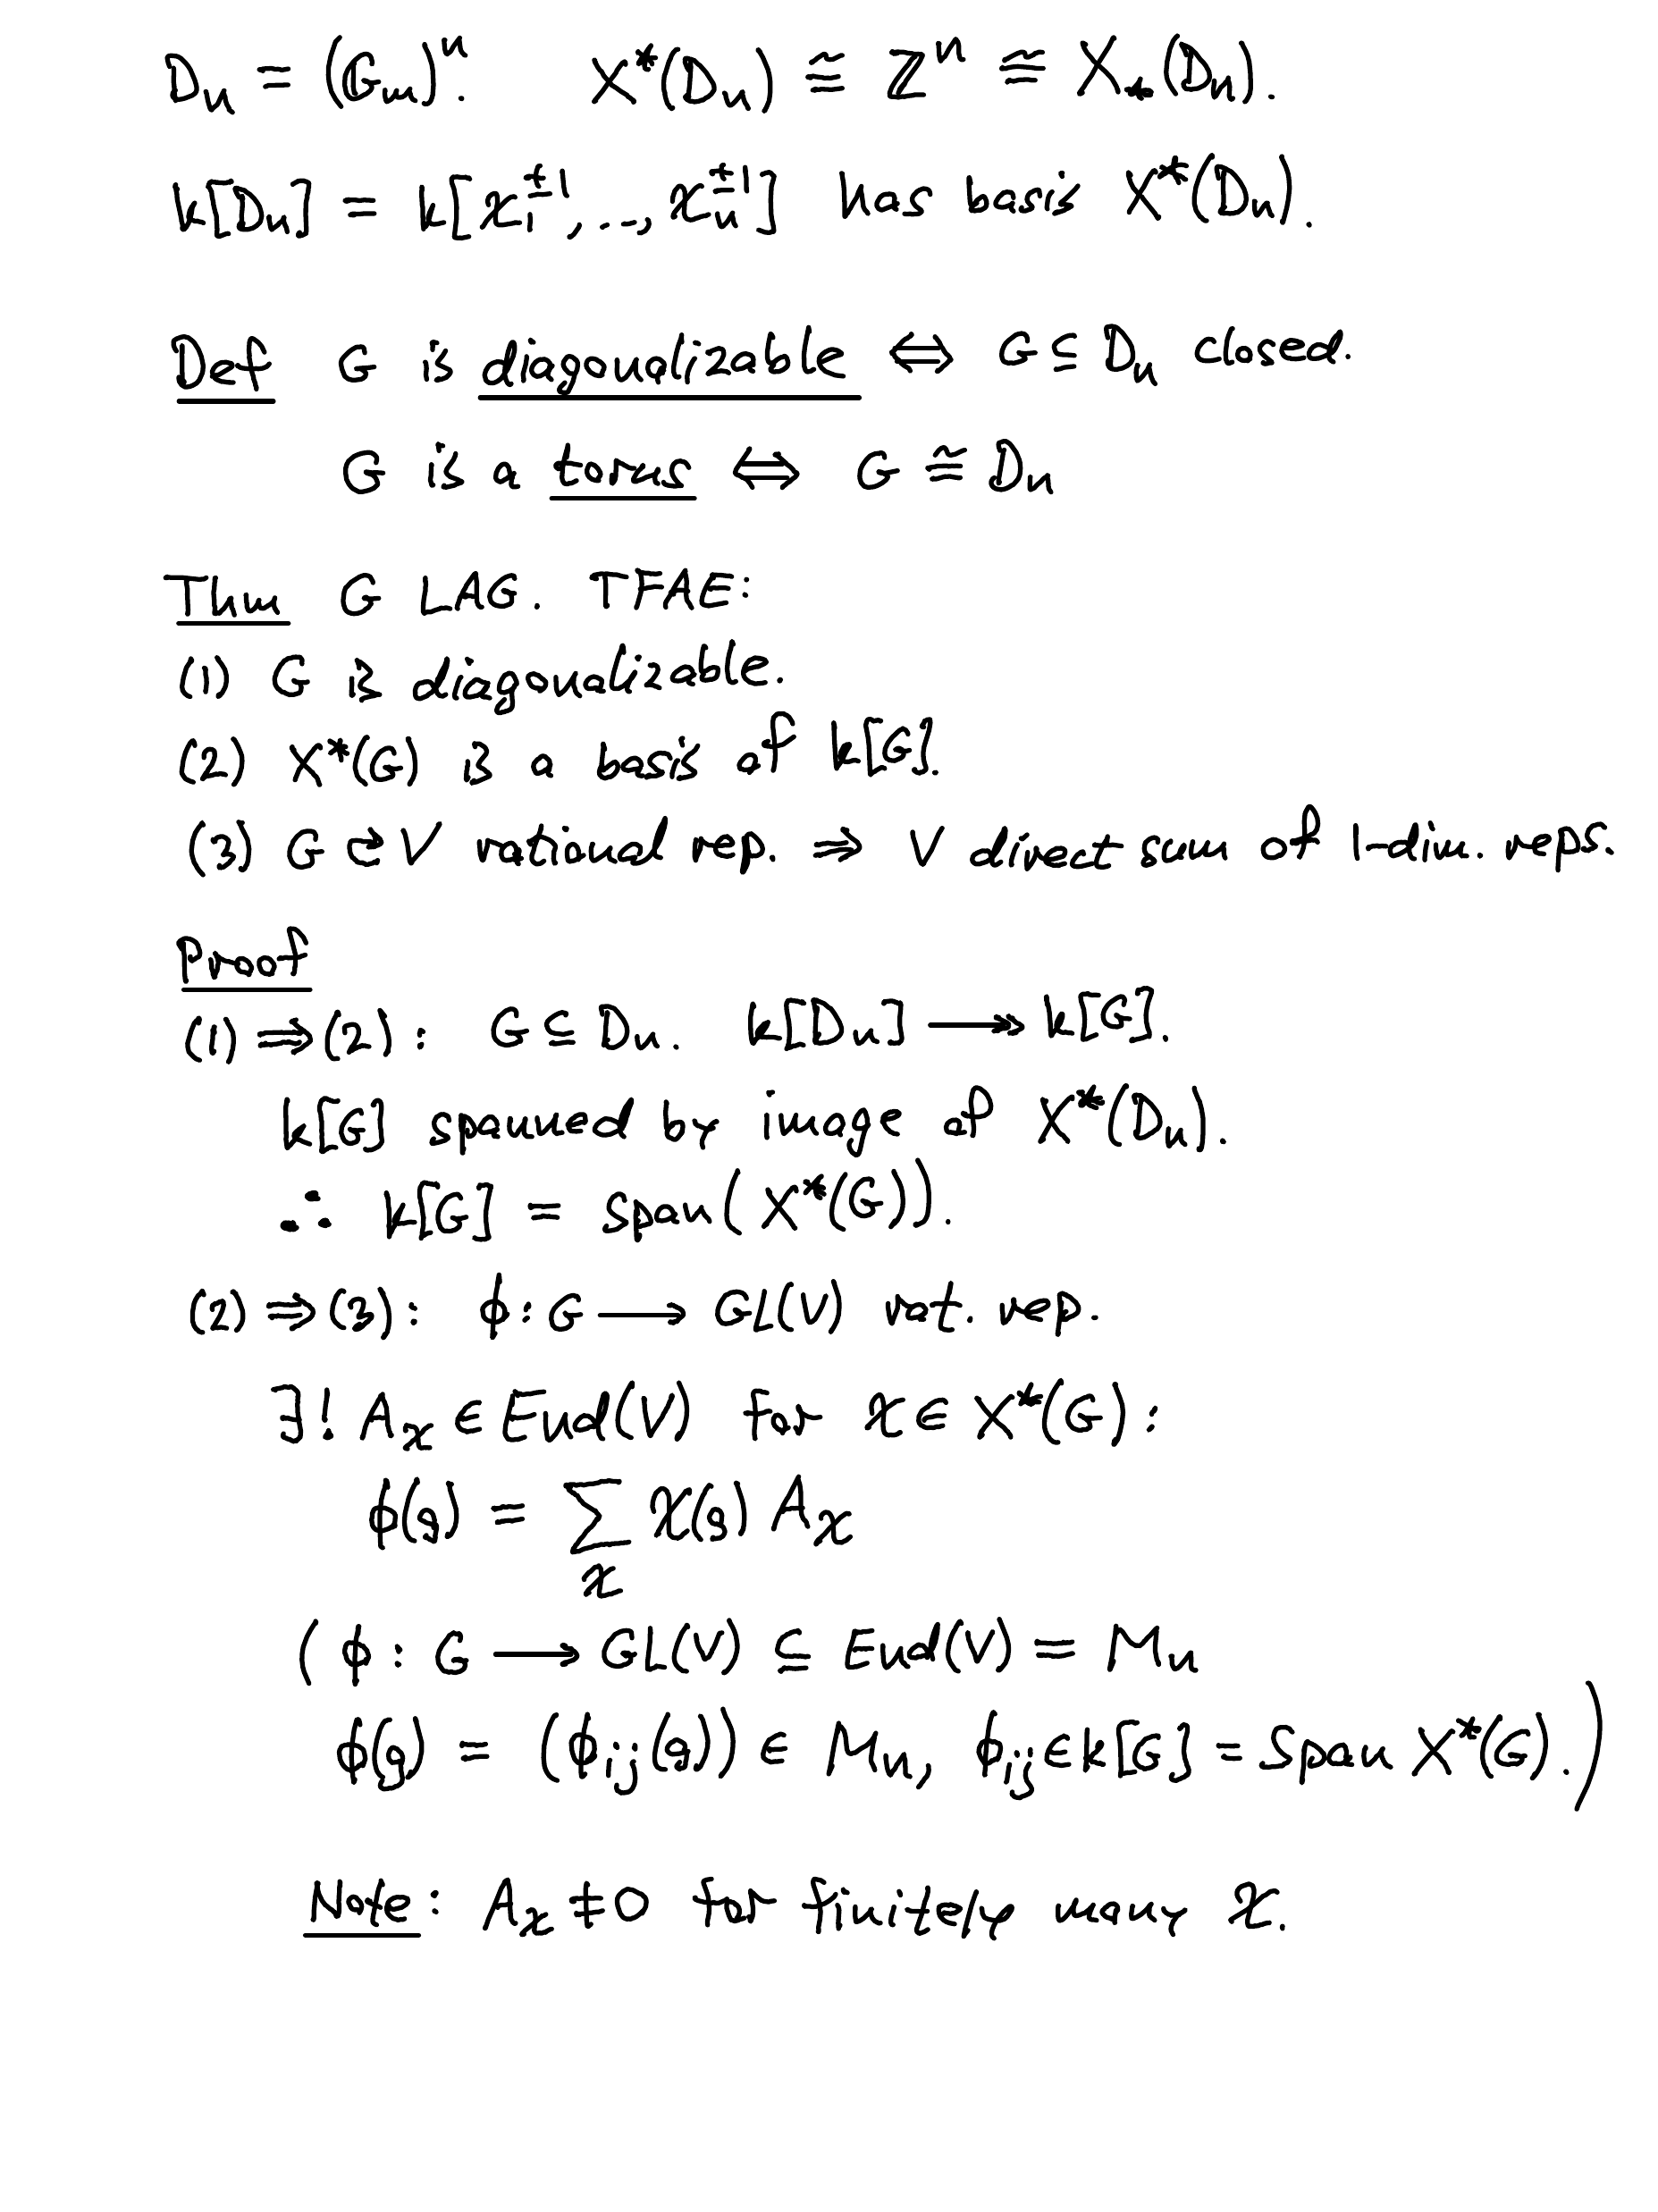 Dₙ = (𝔾ₘ)ⁿ. X*(Dₙ) ≅ ℤⁿ ≅ X_*(Dₙ).
k[Dₙ] = k[χ₁^{±1}, ..., χₙ^{±1}] has basis X*(Dₙ).
Def G is diagonalizable ⇔ G ⊆ Dₙ closed.
G is a torus ⇔ G ≅ Dₙ
Thm G LAG. TFAE:
(1) G is diagonalizable.
(2) X*(G) is a basis of k[G].
(3) G ⊂→ V rational rep. ⇒ V direct sum of 1-dim. reps.
Proof
(1) ⇒ (2) : G ⊆ Dₙ. k[Dₙ] ↠ k[G].
k[G] spanned by image of X*(Dₙ).
∴ k[G] = span(X*(G)).
(2) ⇒ (3) : φ : G ⟶ GL(V) rat. rep.
∃! A_χ ∈ End(V) for χ ∈ X*(G) :
φ(g) = ∑_χ χ(g) A_χ
( φ : G ⟶ GL(V) ⊆ End(V) = Mₙ
φ(g) = (φ_{ij}(g)) ∈ Mₙ, φ_{ij} ∈ k[G] = Span X*(G). )
Note : A_χ ≠ 0 for finitely many χ.